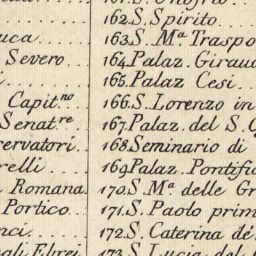 162. S. Spirito
uca... 163. S. Mª. Traspo
Severo... 164. Palaz. Giraud
165. Palaz Cesi
Capit.no 166. S. Lorenzo in
Senat.re 167. Palaz. del S.
servatori. 168 Seminario di
relli... 169 Palaz. Pontific
Romana. 170. S. Mª. delle Gr
Portico... 171. S. Paolo prim
nci... 172. S. Caterina dé
gli Ebrei. 173. S. Lucia del